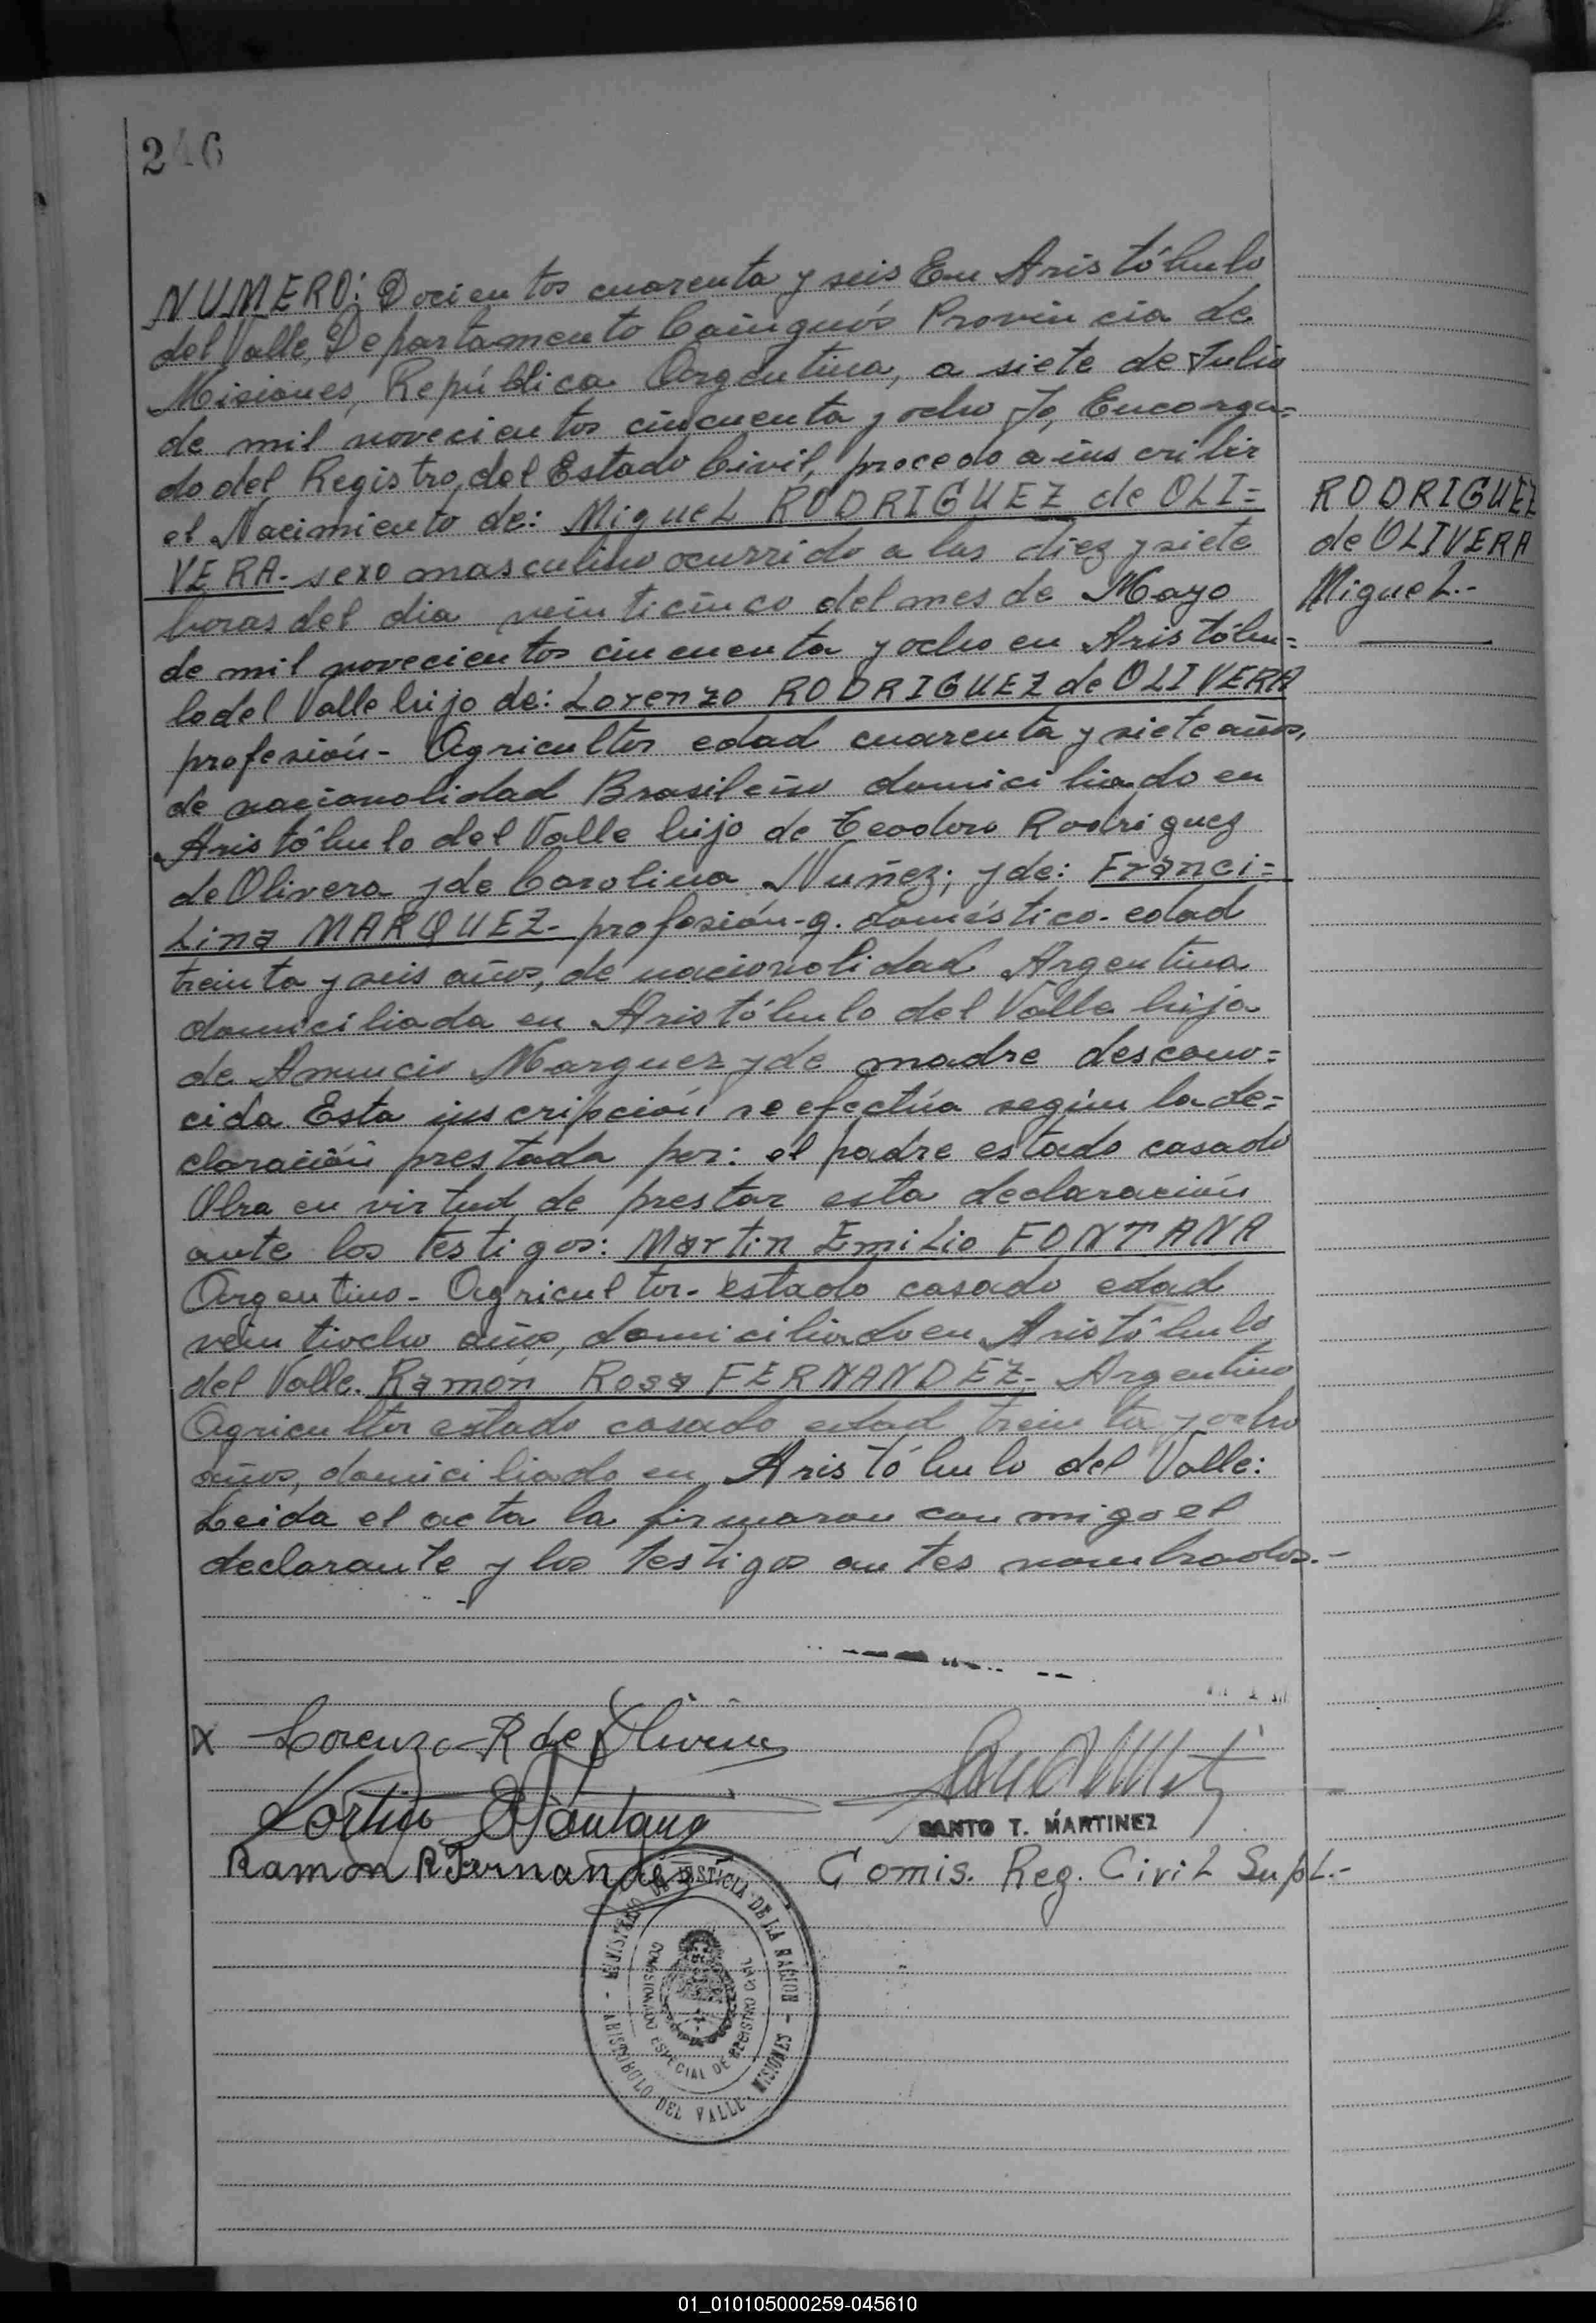 246
NUMERO: Docientos cuarenta y seis En Aristóbulo
del Valle, Departamento Cainguás Provincia de
Misiones, República Argentina, a siete de Julio
de mil novecientos cincuenta y ocho Yo, Encarga=
do del Registro, del Estado Civil, procedo a inscribir
el Nacimiento de: Miguel RODRIGUEZ de OLI=
VERA- sexo masculino ocurrido a las diez y siete
horas del dia veinticinco del mes de Mayo
de mil novecientos cincuenta y ocho en Aristóbu=
lo del Valle hijo de: Lorenzo RODRIGUEZ de OLIVERA
profesión- Agricultor edad cuarenta y siete años,
de nacionalidad Brasileño domiciliado en
Aristóbulo del Valle hijo de Teodoro Rodriguez
de Olivera y de Carolina Nuñez; y de: Franci=
Lina MARQUEZ- profesión-q. doméstico- edad
treinta y seis años, de nacionalidad Argentina
domiciliada en Aristóbulo del Valle hija
de Anuncio Marquez y de madre descono=
cida Esta inscripción se efectúa según la de=
claración prestada por: el padre estado casado
Obra en virtud de prestar esta declaración
ante los testigos: Martin Emilio FONTANA
Argentino- Agricultor- estado casado edad
veintiocho años, domiciliado en Aristóbulo
del Valle. Ramón Rosa FERNANDEZ- Argentino
Agricultor estado casado edad treinta y ocho
años, domiciliado en Aristóbulo del Valle:
Leida el acta la firmaron conmigo el
declarante y los testigos antes nombrados.-
RODRIGUEZ
de OLIVERA
Miguel.-
X Lorenzo R de Olivera
Martin E Fontana
Ramon R Fernandez
SANTO T. MARTINEZ
Comis. Reg. Civil Supl.-
MINISTERIO DE JUSTICIA DE LA NACION - MISIONES
- ARISTOBULO DEL VALLE -
COMISIONADO ESPECIAL DE REGISTRO CIVIL
01_010105000259-045610